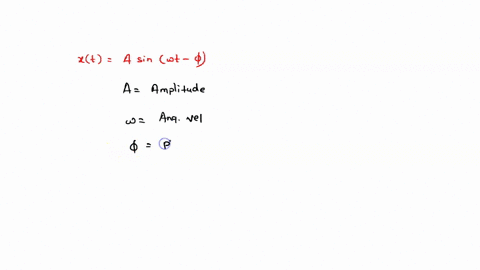 x(t) = A sin (ωt - ϕ)
A = Amplitude
ω = Ang. vel
ϕ = P